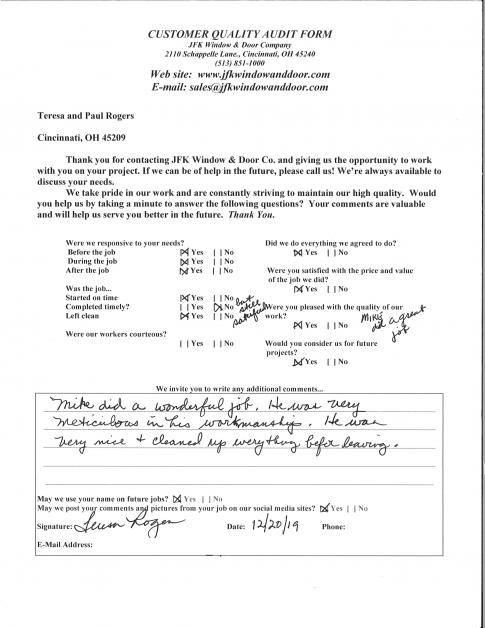 CUSTOMER QUALITY AUDIT FORM
JFK Window & Door Company
2110 Schappelle Lane., Cincinnati, OH 45240
(513) 851-1000
Web site: www.jfkwindowanddoor.com
E-mail: sales@jfkwindowanddoor.com
Teresa and Paul Rogers
Cincinnati, OH 45209
Thank you for contacting JFK Window & Door Co. and giving us the opportunity to work
with you on your project. If we can be of help in the future, please call us! We're always available to
discuss your needs.
We take pride in our work and are constantly striving to maintain our high quality. Would
you help us by taking a minute to answer the following questions? Your comments are valuable
and will help us serve you better in the future. Thank You.
Were we responsive to your needs?
Before the job [X] Yes [ ] No
During the job [X] Yes [ ] No
After the job [X] Yes [ ] No
Was the job...
Started on time [X] Yes [ ] No
Completed timely? [ ] Yes [X] No but still satisfied
Left clean [X] Yes [ ] No
Were our workers courteous?
[ ] Yes [ ] No
Did we do everything we agreed to do?
[X] Yes [ ] No
Were you satisfied with the price and value
of the job we did?
[X] Yes [ ] No
Were you pleased with the quality of our
work?
[X] Yes [ ] No
Mike did a great job
Would you consider us for future
projects?
[X] Yes [ ] No
We invite you to write any additional comments...
Mike did a wonderful job. He was very
meticulous in his workmanship. He was
very nice + cleaned up everything before leaving.
May we use your name on future jobs? [X] Yes [ ] No
May we post your comments and pictures from your job on our social media sites? [X] Yes [ ] No
Signature: Teresa Rogers Date: 12/20/19 Phone:
E-Mail Address: